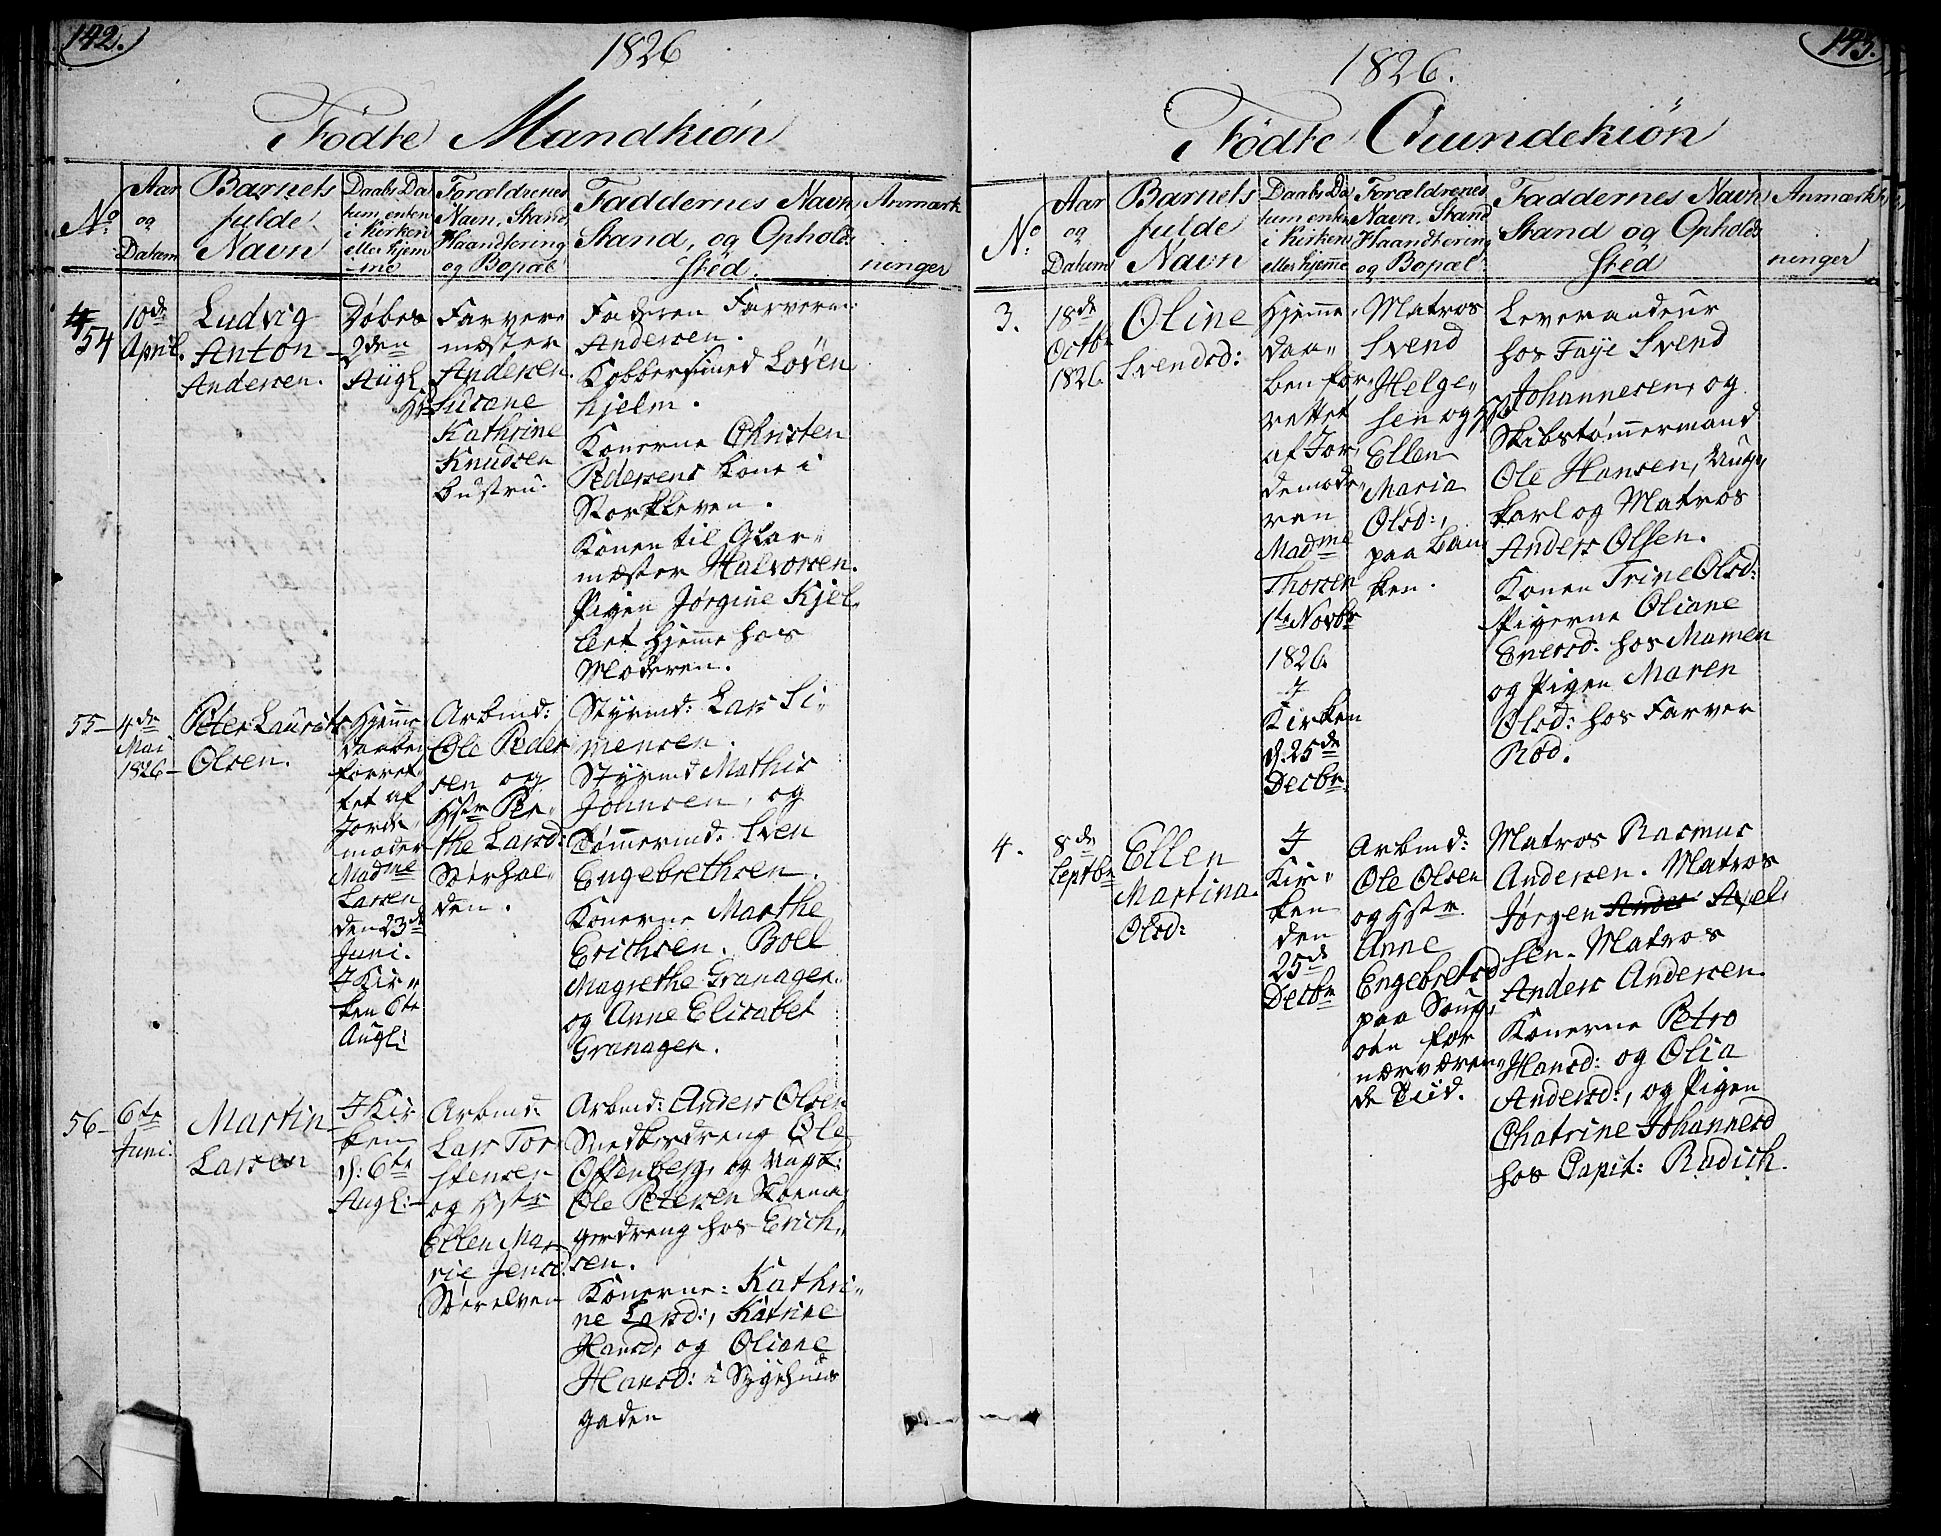 142.
1826
Fødte Mandkiøn
No.
Aar
og
Datum
Barnets
fulde
Navn
Daabs Da
tum enten
i Kirken
eller hjem
-me
Forældrenes
Navn, Stand,
Haandtering
og Bopæl
Faddernes Navn
Stand, og Opholds
sted.
Anmærk
ninger
54
10de
April.
Ludvig
Anton
Andersen.
Døbes
2den
Augl.
Farver
mæster
Andersen.
Susane
Kathrine
Knudsen
hustru.
Faderen Farverm:
Andersen.
Kobbersmed Løven
hjelm.
Konerne Christen
Pedersens kone i
Storkleven.
Konen til Glar-
mæster Halvorsen.
Pigen Jørgine Kjel
lert hjemme hos
Moderen.
55-
4de
Mai
1826-
Peter Laurits
Olsen.
Hjemme
daaben
forret
tet af
Jorde
moder
Madme
Larsen
den 23de
Juni.
I Kir-
ken 6te
Augl:
Arbmd:
Ole Peder
sen og
Hstr Ber
the Larsd:
Størhol-
den.
Styrmd: Lars Si-
mensen.
Styrmd Mathis
Johnsen, og
Tømmermd: Sven
Engebrethsen.
Konerne Marthe
Erichsen. Boel
Magrethe Granager.
og Anne Elisabet
Granager.
56-
6te
Juni.
Martin
Larsen
I Kir
ken
d: 6te
Augl:-
Arbmd:
Lars Tor
stensen
og Hstr
Ellen Ma-
rie Jensd:
Størelven
Arbmd: Anders Olsen
Snedkerdreng Ole
Offenberg, og Vagt:
Ole Petersen Skoma
gerdreng hos Erich-
sen.
Konerne: Kathri-
ne Larsd:, Katrine
Hansd, og Oliane
Hansd: i Sygehuus
gaden
143.
1826.
Fødte Qvindekiøn
No.
Aar
og
Datum
Barnets
fulde
Navn
Daabs Da
tum enten
i Kirken
eller hjemme
Forældrenes
Navn, Stand
Haandtering
og Bopæl
Faddernes Navn
Stand og Opholds
sted
Anmærk
ninger
3.
18de
Octbr
1826
Oline
Svendsd:
Hjemme
daa-
ben for
rettet
af Jor
demode
ren
Madme
Thorsen
1te Novbr
1826.
I
Kirken
d. 25de
Decbr.
Matros
Svend
Helge-
sen og H
Ellen
Maria
Olsd:,
paa Ban
ken.
Leverandeur
hos Faye Svend
Johannesen, og
Skibstømmermand
Ole Hansen, Ung
karl og Matros
Anders Olsen.
Konen Trine Olsd:
Pigerne Oliane
Enersd: hos Mamen
og Pigen Maren
Olsd: hos Farver
Rød.
4.
8de
Septbr
Ellen
Martina
Olsd:
I
Kir-
ken
den
25de
Decbr
Arbmd:
Ole Olsen
og Hstr
Anne
Engebretsd
paa
for
nærværen
de Tiid.
Matros Rasmus
Andersen. Matros
Jørgen Axel
sen. Matros
Anders Andersen.
Konerne Petro
Hansd: og Olia
Andersd:, og Pigen
Chatrine Johannesd
hos Capit: Radich.